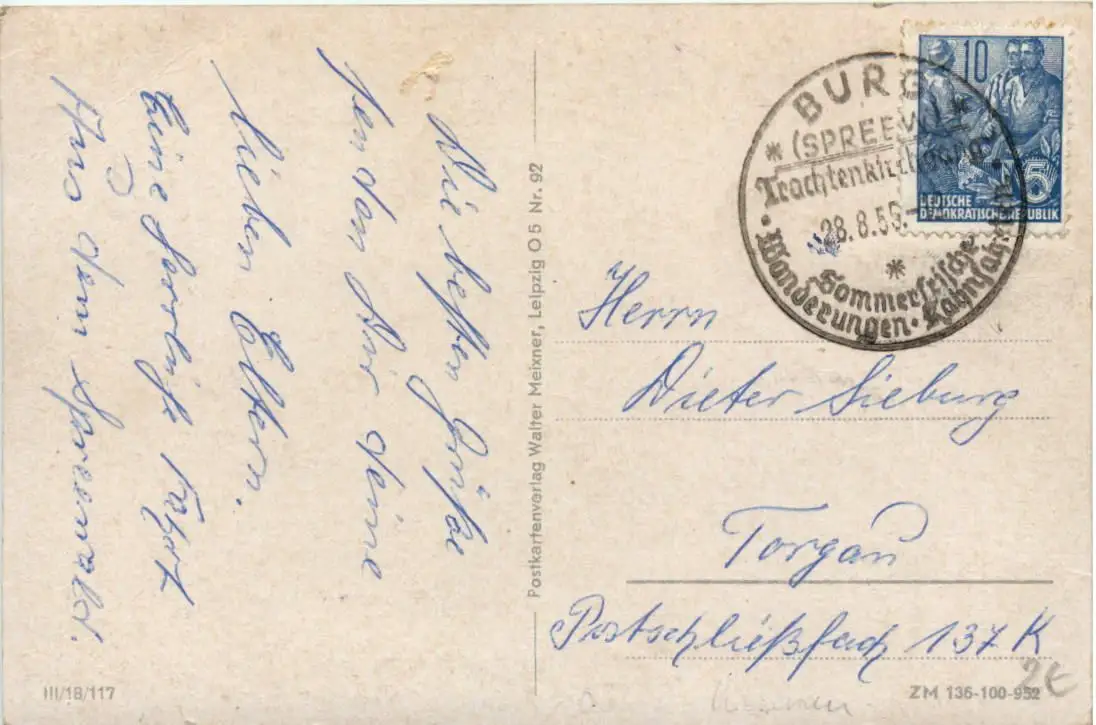 Die besten Grüße
senden Dir deine
lieben Eltern.
Eine herrlich Fahrt
Aus dem Spreewald.
III/18/117
Postkartenverlag Walter Meixner, Leipzig O 5 Nr. 92
BURG
* (SPREEW.) *
Trachtenkirchgang
28.8.56.-
*
Sommerfrische
· Wanderungen · Kahnfahrten ·
10
5
DEUTSCHE
DEMOKRATISCHE REPUBLIK
Herrn
Dieter Sieburg
Torgau
Postschließfach 137 K
ZM 136-100-952
2€